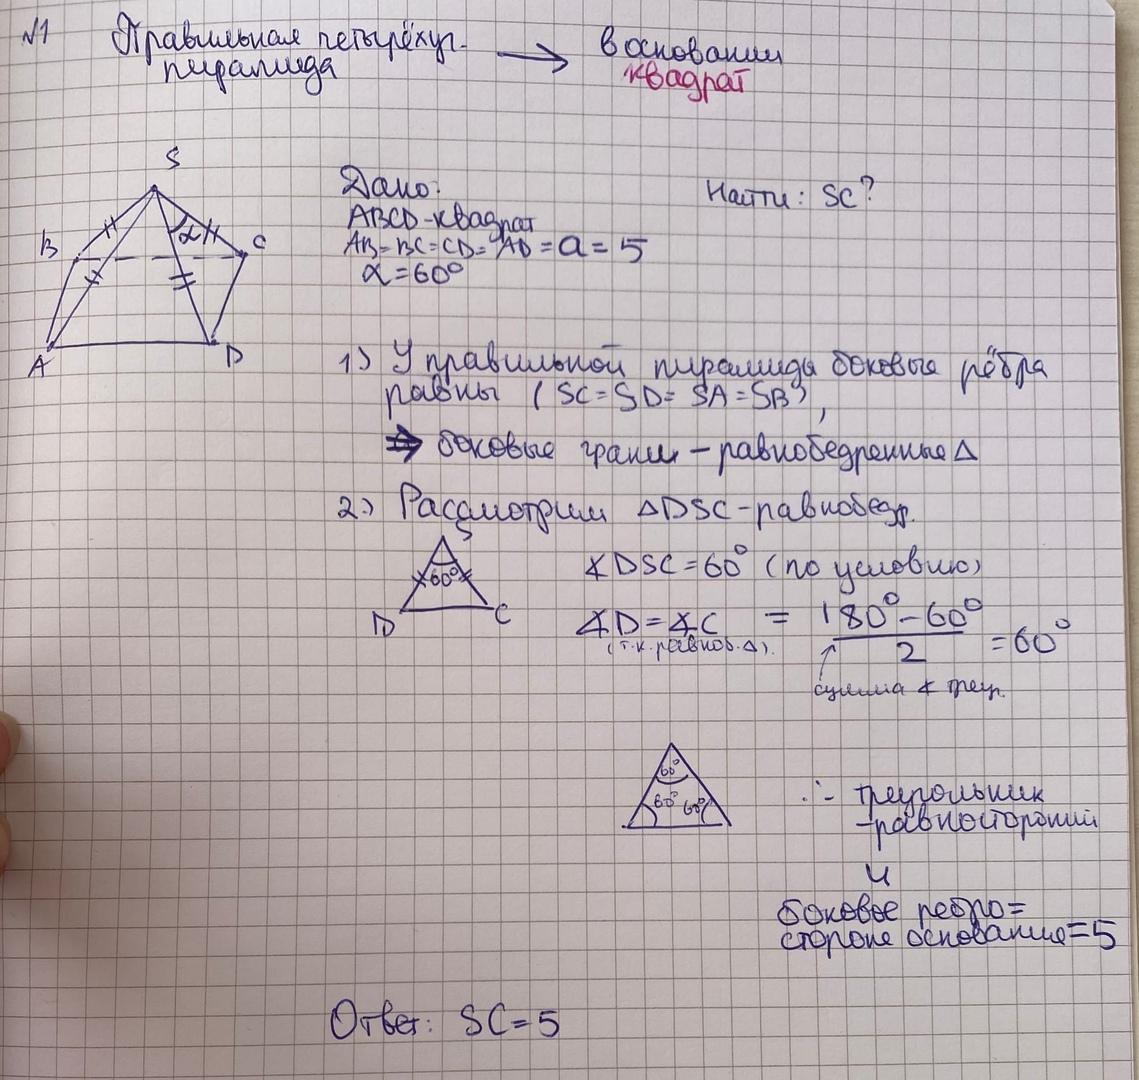 №1 Правильная четырёхуг. → в основании
пирамида квадрат
S
B
C
A
D
α
Дано:
Найти: SC?
ABCD-квадрат
AB=BC=CD=AD=a=5
α=60°
1) У правильной пирамиды боковые рёбра
равны (SC=SD=SA=SB),
⇒ боковые грани - равнобедренные Δ
2) Рассмотрим ΔDSC-равнобедр.
S
60°
D
C
∡DSC=60° (по условию)
∡D=∡C = 180°-60° / 2 = 60°
(т.к. равноб. Δ).
сумма ∡ треуг.
60°
60° 60°
∴ треугольник
-равносторонний
и
боковое ребро=
стороне основания=5
Ответ: SC=5